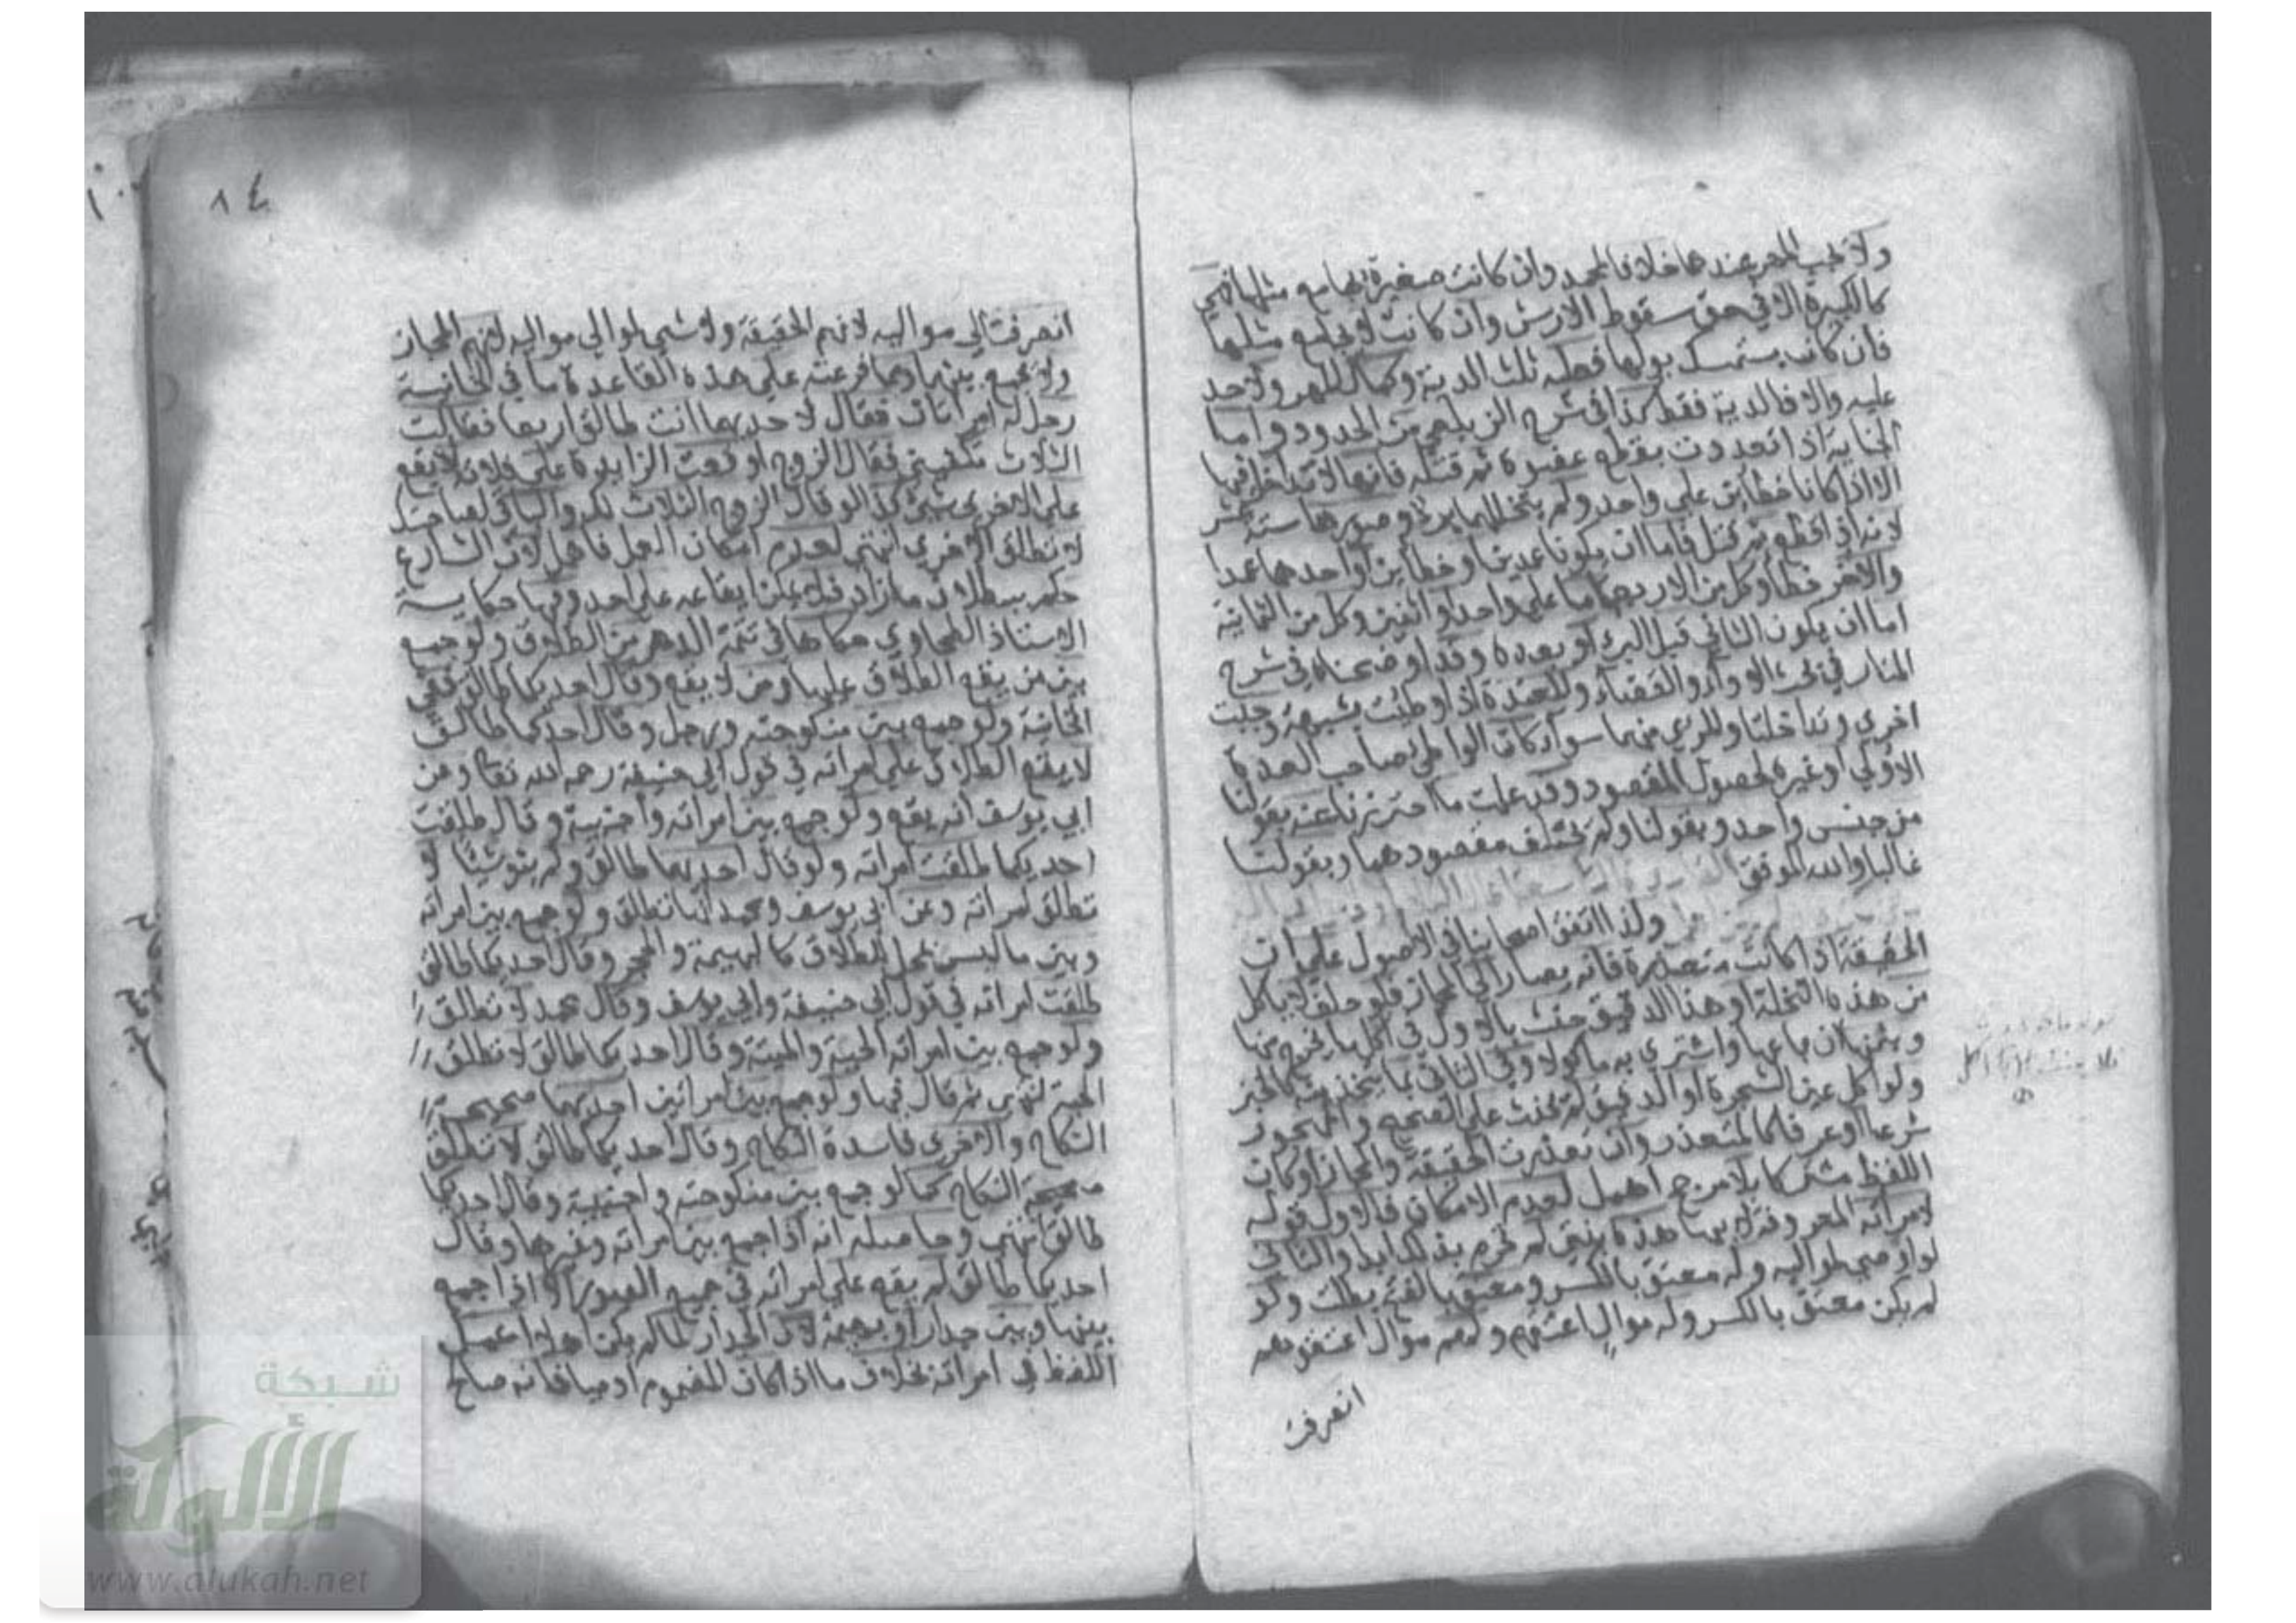 ولا يجب المهر عندهما خلافا لمحمد وان كانت صغيرة يجامع مثلها فهي
كالكبيرة الا في حق سقوط الارش وان كانت لا يجامع مثلها
فان كان يستمسك بولها فعليه ثلث الدية وكمال المهر ولا حد
عليه والا فالدية فقط كذا في شرح الزيلعي من الحدود واما
الجناية اذا تعددت بقطع عضوه ثم قتله فانها لا تتداخل فيها
الا اذا كانا خطأين على واحد ولم يتخللهما برء وصورها ستة عشر
لانه اذا قطع ثم قتل فاما ان يكونا عمدين او خطأين او احدهما عمدا
والاخر خطأ وكل من الاربعة اما على واحد او اثنين وكل من الثمانية
اما ان يكون الثاني قبل البرء او بعده وقد اوضحناه في شرح
المنار في بحث الاداء والقضاء والمعتدة اذا وطئت بشبهة وجبت
اخرى وتداخلتا والمرئي منهما سواء كان الواطئ صاحب العدة
الاولى او غيره لحصول المقصود وقد علمت ما احترزنا عنه بقولنا
من جنس واحد وبقولنا ولم يختلف مقصودهما وبقولنا
غالبا والله الموفق
ولذا اتفق اصحابنا في الاصول على ان
الحقيقة اذا كانت متعذرة فانه يصار الى المجاز فلو حلف لا ياكل
من هذه النخلة او هذا الدقيق حنث بالاول في اكل ما يخرج منها
وبثمنها ان باعها واشترى به ماكولا وفي الثاني بما يتخذ منه كالخبز
ولو اكل عين الشجرة او الدقيق لم يحنث على الصحيح والمهجور
شرعا او عرفا كالمتعذر وان تعذرت الحقيقة والمجاز او كان
اللفظ مشتركا بلا مرجح اهمل لعدم الامكان فالاول قوله
لامراته المعروفة لابيها هذه بنتي لم تحرم بذلك ابدا والثاني
لو اوصى لمواليه وله معتق بالكسر ومعتق بالفتح بطلت ولو
لم يكن معتق بالكسر وله موال اعتقهم ولهم موال اعتقوهم
انصرفت
٨٤
انصرفت الى مواليه لانهم الحقيقة ولا شيء لموالي مواليه لانهم المجاز
ولا يجمع بينهما ومما فرعته على هذه القاعدة ما في الخانية
رجل له امراتان فقال لاحديهما انت طالق اربعا فقالت
الثلاث تكفيني فقال الزوج اوقعت الزايدة على فلانة لا يقع
على الاخرى شيئ وكذا لو قال الزوج الثلاث لك والباقي لصاحبتك
لا تطلق الاخرى انتهى لعدم امكان العمل فاهمل لان الشارع
حكم ببطلان ما زاد فلا يمكن ايقاعه على احد وفيها حكاية
الاستاذ الطحاوي حكاها في يتيمة الدهر من الطلاق ولو جمع
بين من يقع الطلاق عليها ومن لا يقع وقال احديكما طالق ففي
الخانية ولو جمع بين منكوحته ورجل وقال احديكما طالق
لا يقع الطلاق على امراته في قول ابي حنيفة رحمه الله تعا وعن
ابي يوسف انه يقع ولو جمع بين امراته واجنبية وقال طلقت
احديكما طلقت امراته ولو قال احديكما طالق ولم ينو شيئا لا
تطلق امراته وعن ابي يوسف ومحمد انها تطلق ولو جمع بين امراته
وبين ما ليس بمحل للطلاق كالبهيمة والحجر وقال احديكما طالق
طلقت امراته في قول ابي حنيفة وابي يوسف وقال محمد لا تطلق
ولو جمع بين امراته الحية والميتة وقال احديكما طالق لا تطلق
الحية انتهى ثم قال فيها ولو جمع بين امراتين احديهما صحيحة
النكاح والاخرى فاسدة النكاح وقال احديكما طالق لا تطلق
صحيحة النكاح كما لو جمع بين منكوحته واجنبية وقال احديكما
طالق انتهى وحاصله انه اذا جمع بين امراته وغيرها وقال
احديكما طالق لم يقع على امراته في جميع الصور الا اذا جمع
بينها وبين جدار او بهيمة لان الجدار لما لم يكن اهلا اعمل
اللفظ في امراته بخلاف ما اذا كان المضموم ادميا فانه صالح
شبكة
الألوكة
www.alukah.net